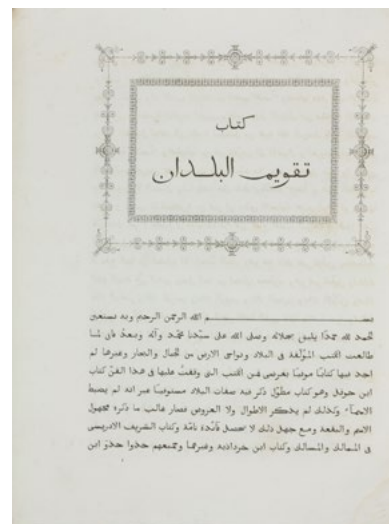 كتاب
تقويم البلدان
بسم الله الرحمن الرحيم وبه نستعين
الحمد لله حمدًا يليق بجلاله وصلى الله على سيّدنا محمّد وآله وبعدُ فإنى لما
طالعت الكتب المؤلّفة فى البلاد ونواحى الارض من الجبال والبحار وغيرها لم
اجد فيها كتابًا موفيًا بغرضى فمن الكتب التى وقفتُ عليها فى هذا الفنّ كتاب
ابن حوقل وهو كتاب مطوّل ذكر فيه صفات البلاد مستوفيًا غير انه لم يضبط
الاسمآء وكذلك لم يذكر الاطوال ولا العروض فصار غالب ما ذكره مجهول
الاسم والبقعة ومع جهل ذلك لا تحصل فآئدة تامّة وكتاب الشريف الادريسى
فى الممالك والمسالك وكتاب ابن خرداذبه وغيرهما وجميعهم حذوا حذو ابن